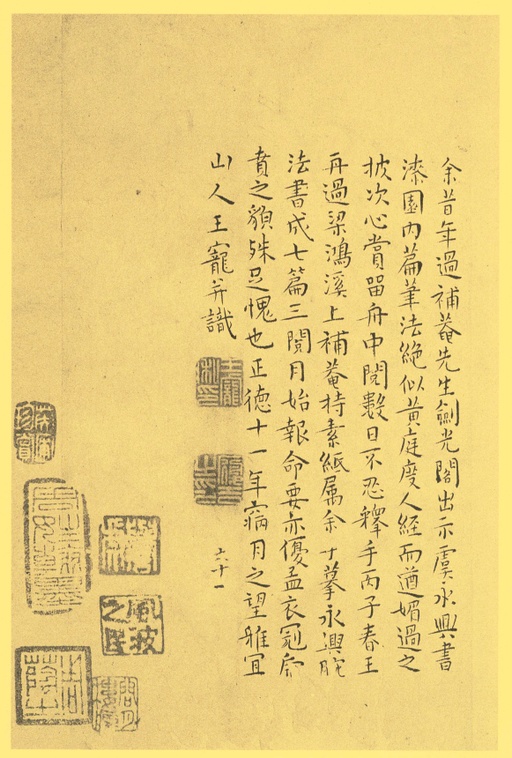 余昔年過補菴先生劍光閣出示虞永興書
漆園內篇筆法絕似黃庭度人經而遒媚過之
披次心賞留舟中閱數日不忍釋手丙子春王
再過梁鴻溪上補菴持素紙属余寸摹永興脫
法書成七篇三閱月始報命要亦優孟衣冠虎
賁之貌殊足愧也正德十一年㾱月之望雅宜
山人王寵并識
六十一